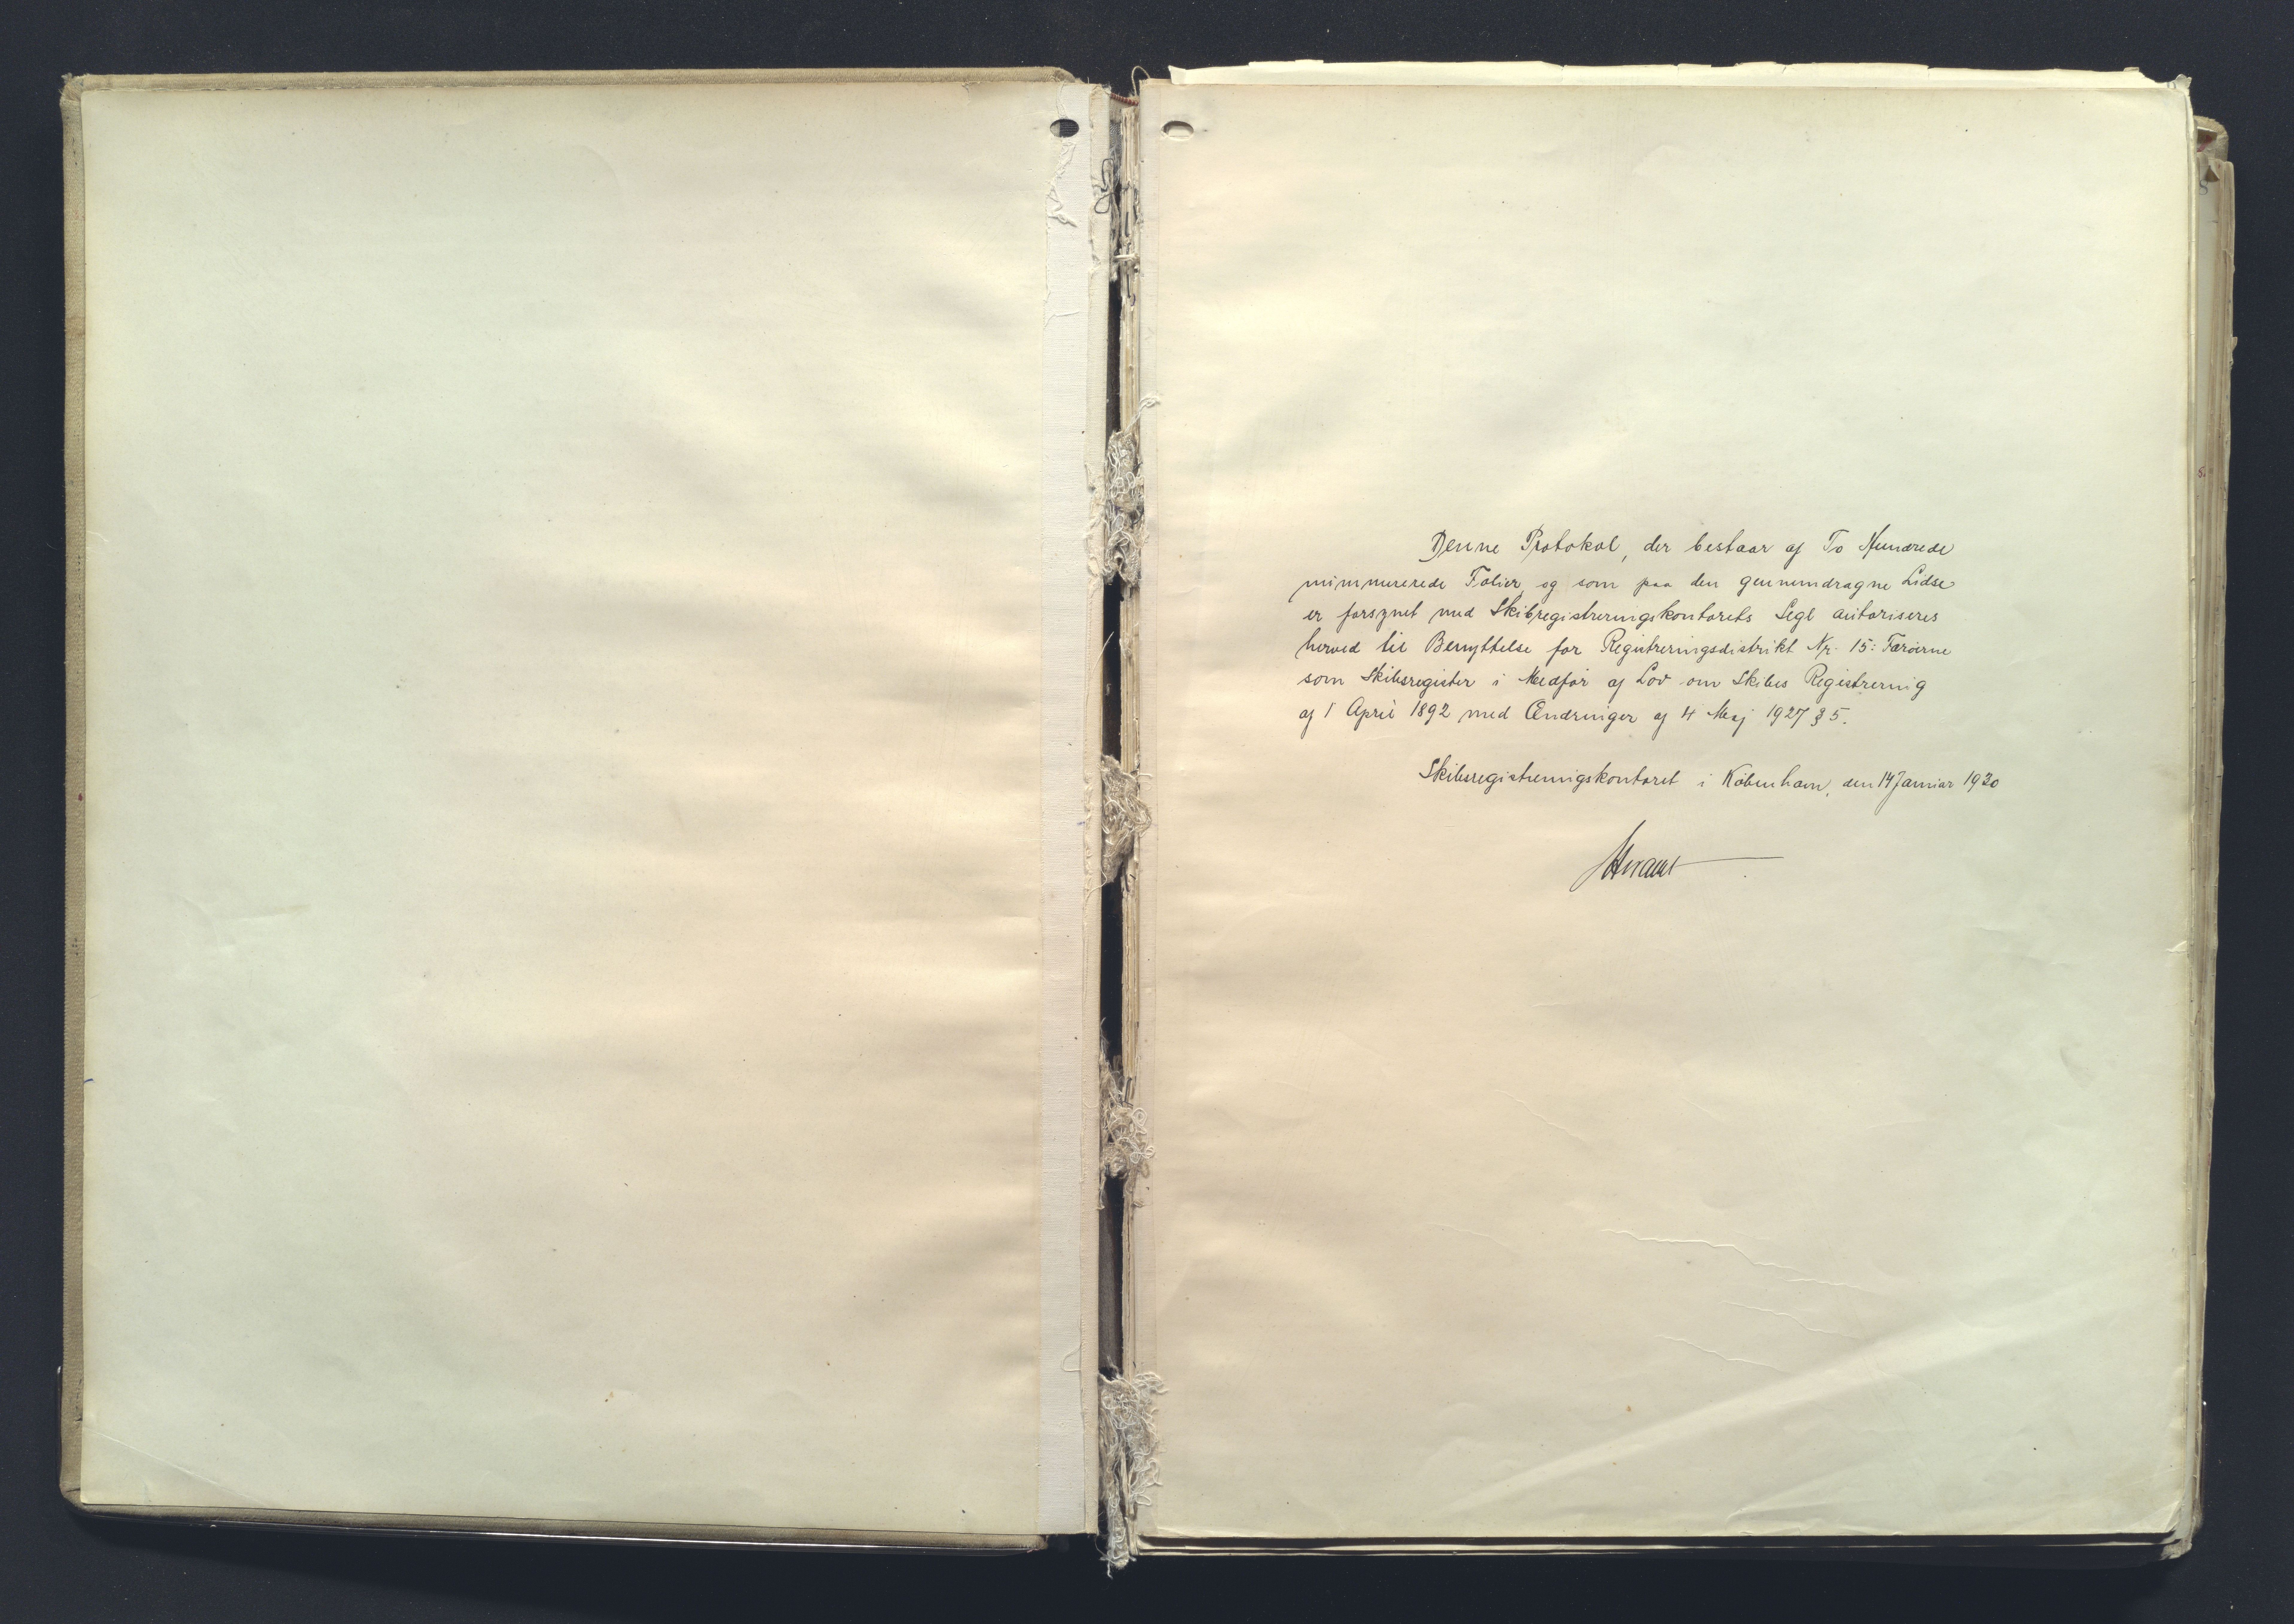 Denne Protokol, der bestaar af To Hundrede
nummererede Folier, og som paa den gennemdragne Lidse
er forsynet med Skibsregistreringskontorets Segl autoriseres
herved til Benyttelse for Registreringsdistrikt Nr. 15: Færöerne
som Skibsregister i Medför af Lov om Skibes Registrering
af 1 April 1892 med Ændringer af 4 Maj 1927 § 5.
Skibsregistreringskontoret i Köbenhavn, den 14 Januar 1930